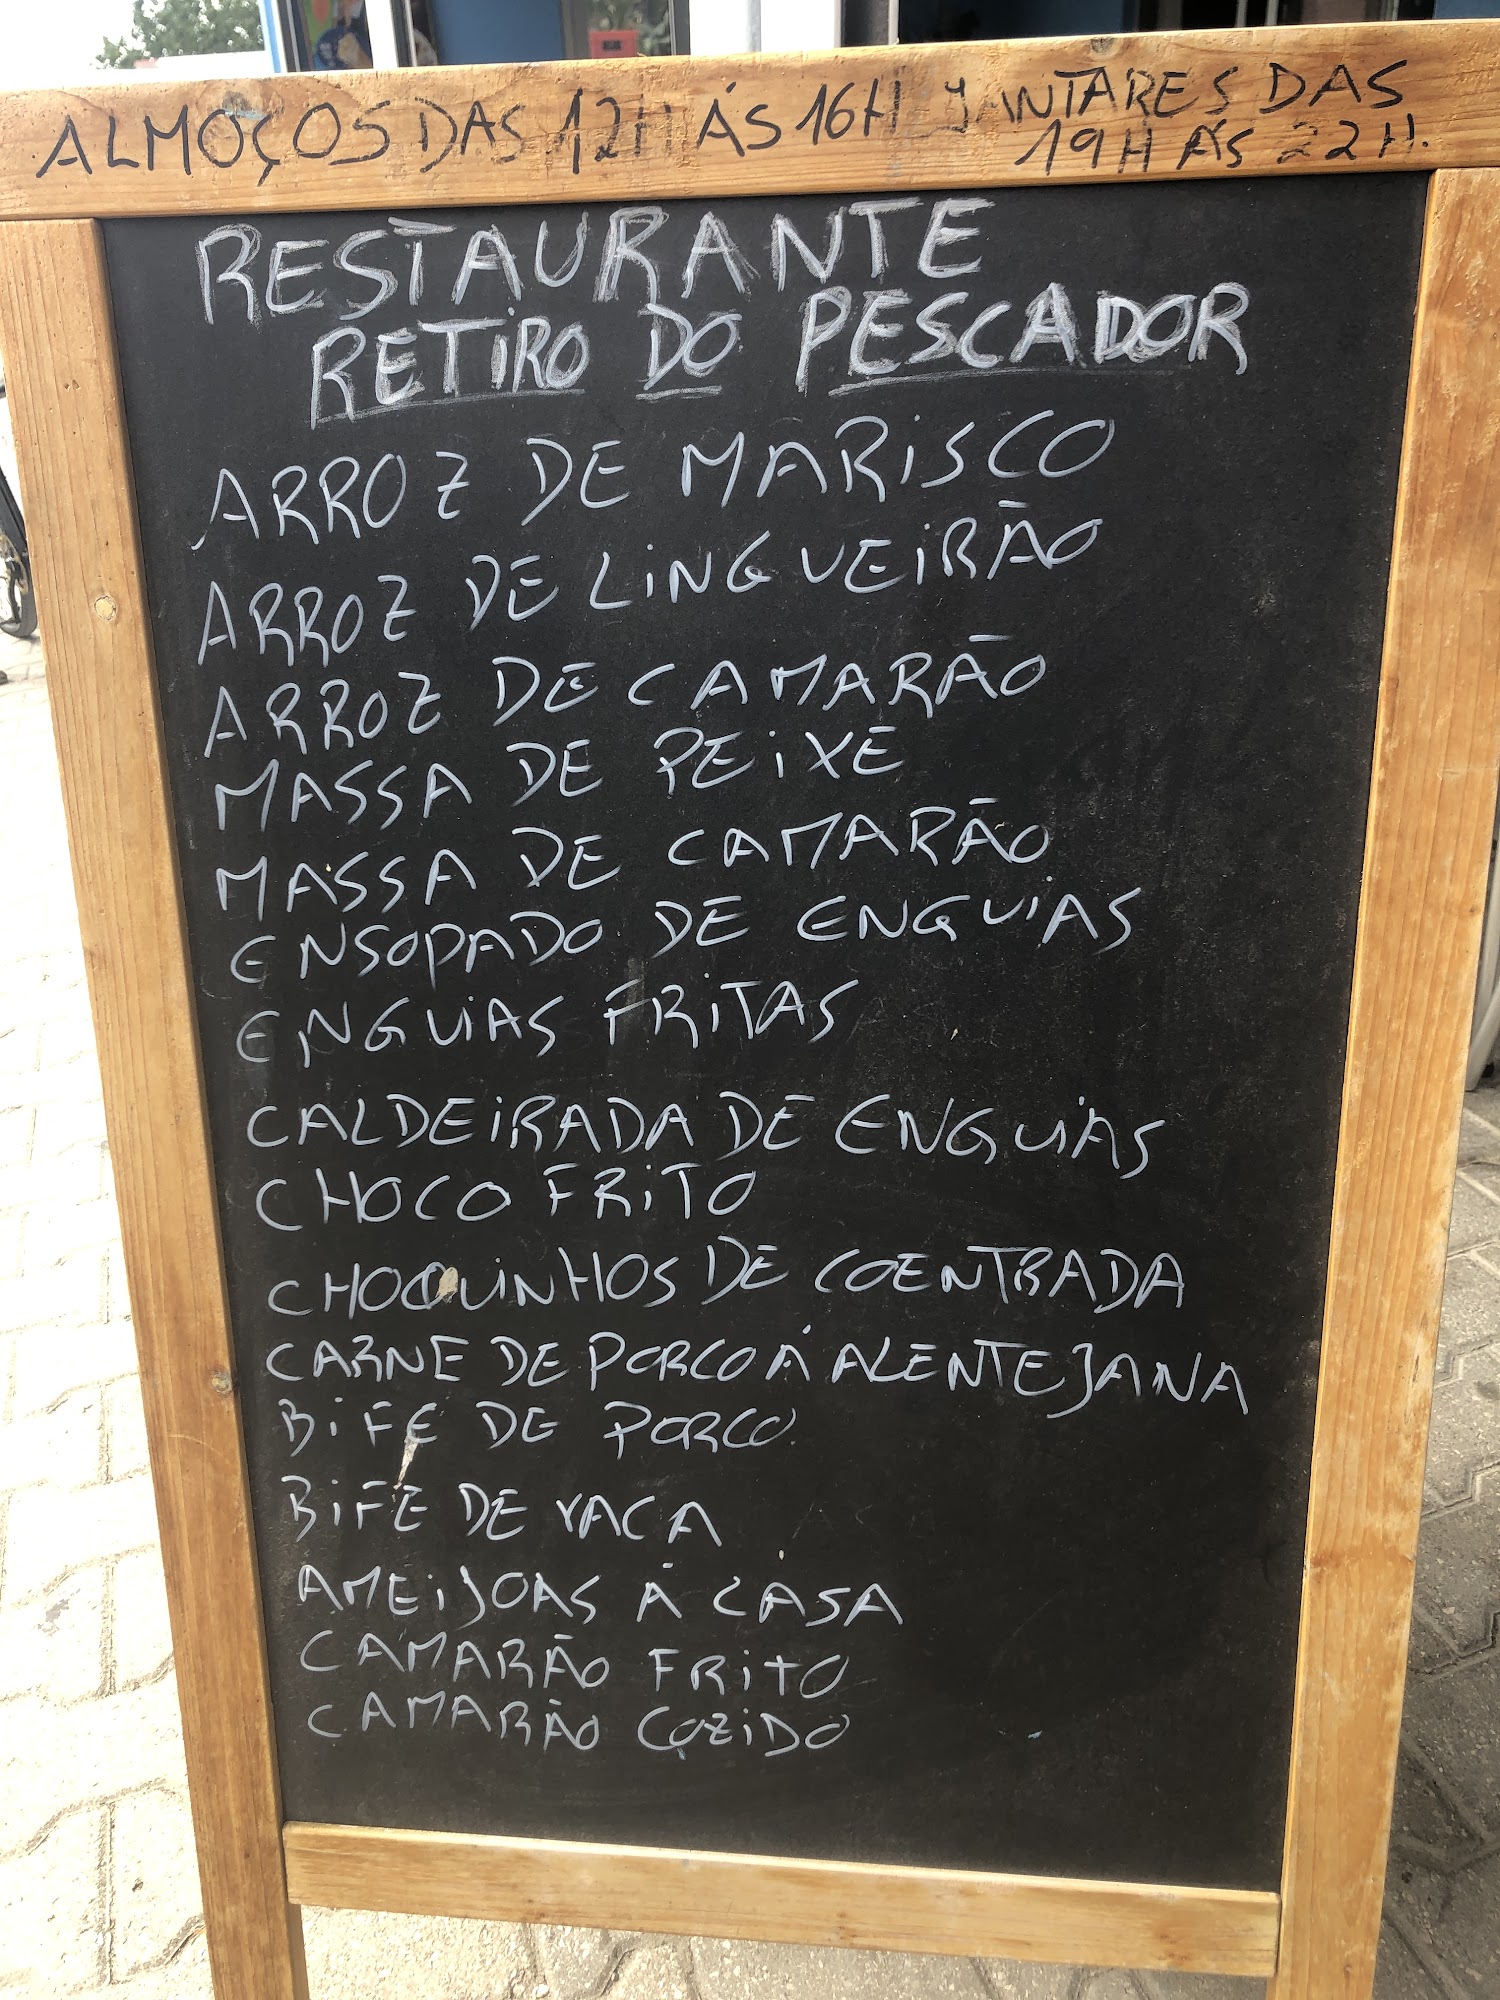 ALMOÇOS DAS 12H ÁS 16H JANTARES DAS
19H ÁS 22H.
RESTAURANTE
RETIRO DO PESCADOR
ARROZ DE MARISCO
ARROZ DE LINGUEIRÃO
ARROZ DE CAMARÃO
MASSA DE PEIXE
MASSA DE CAMARÃO
ENSOPADO DE ENGUIAS
ENGUIAS FRITAS
CALDEIRADA DE ENGUIAS
CHOCO FRITO
CHOQUINHOS DE COENTRADA
CARNE DE PORCO Á ALENTEJANA
BIFE DE PORCO
BIFE DE VACA
AMEIJOAS Á CASA
CAMARÃO FRITO
CAMARÃO COZIDO